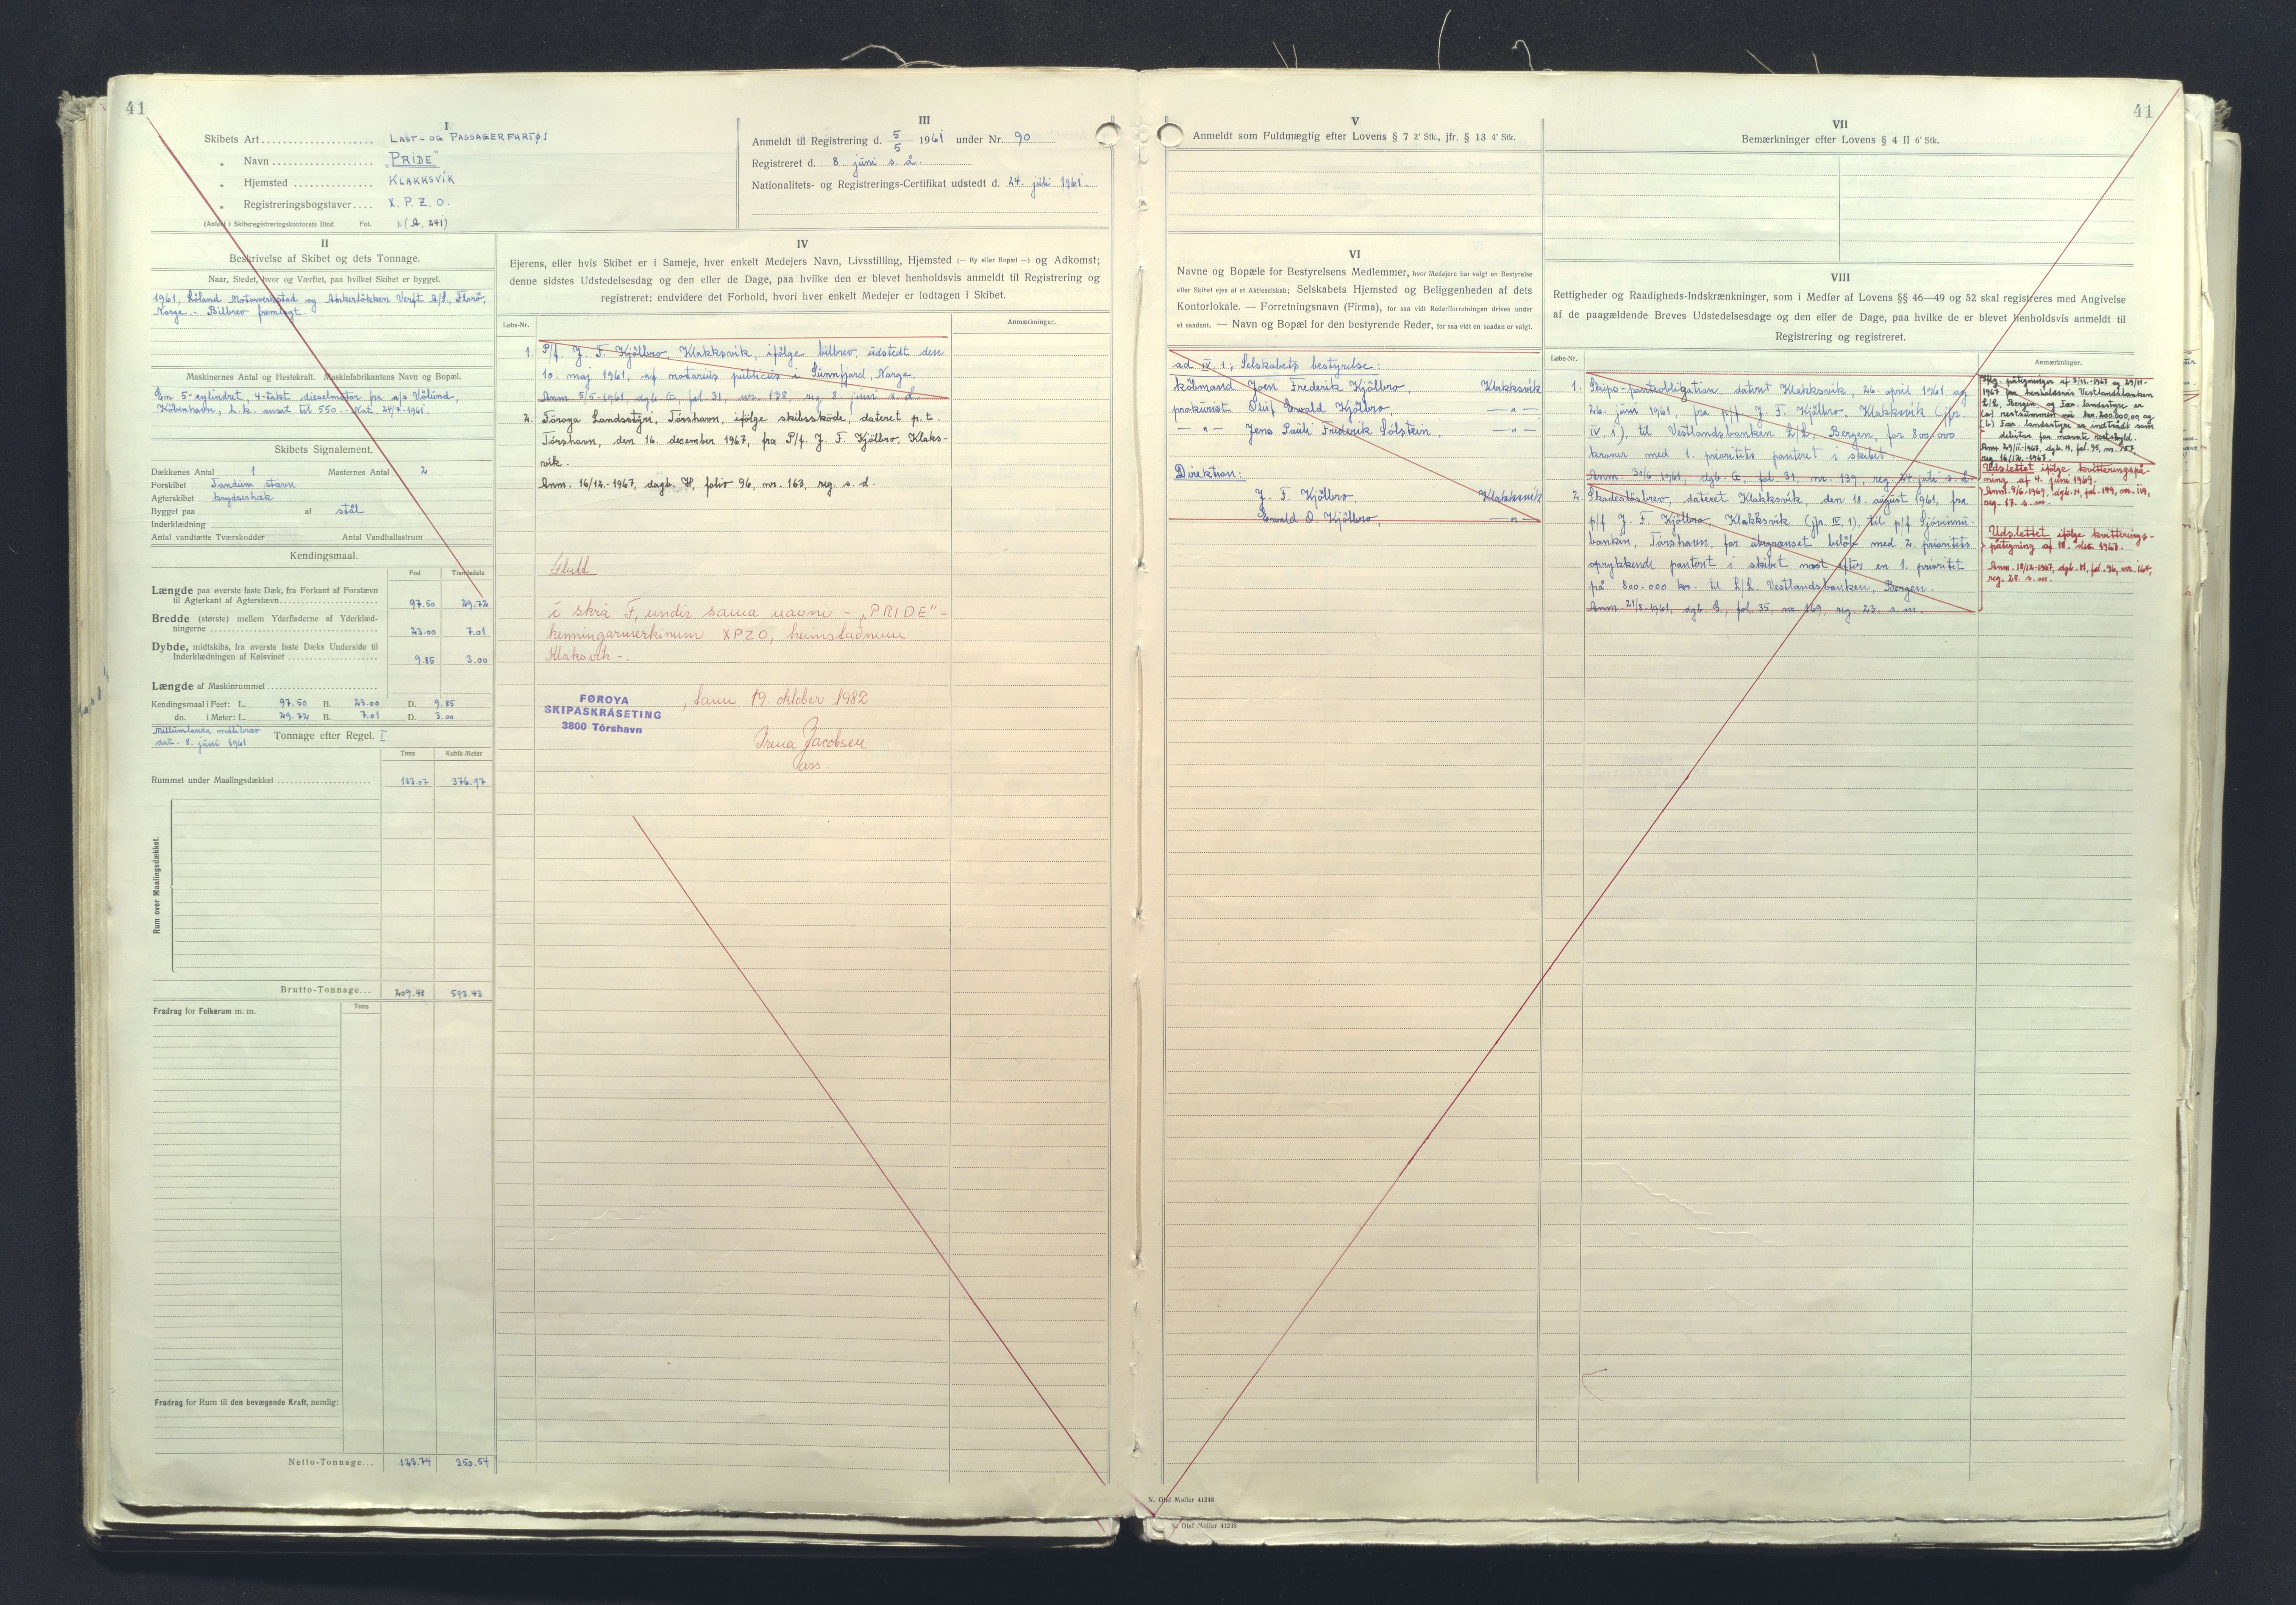 41
I
Skibets Art.................... LAST- OG PASSAGERFARTØJ
„ Navn .................. „PRIDE"
„ Hjemsted .............. KLAKKSVÍK
„ Registreringsbogstaver.... X. P. Z. O.
(Anført i Skibsregistreringskontorets Bind Fol. ). (A. 241)
III
Anmeldt til Registrering d. 5/5 1961 under Nr. 90
Registreret d. 8 júni s. å.
Nationalitets- og Registrerings-Certifikat udstedt d. 24. júli 1961.
II
Beskrivelse af Skibet og dets Tonnage.
Naar, Stedet, hvor og Værftet, paa hvilket Skibet er bygget.
1961, Løland Motorverkstad og Ankerløkken Verft A/S, Florø,
Norge. - Bilbrev fremlagt.
Maskinernes Antal og Hestekraft. Maskinfabrikantens Navn og Bopæl.
En 5-cylindret, 4-takt dieselmotor fra a/s Völund,
København, h.k. anset til 550.- Nat. 24/7-1961.
Skibets Signalement.
Dækkenes Antal 1 Masternes Antal 2
Forskibet stævn
Agterskibet krydserhæk
Bygget paa af stål
Inderklædning
Antal vandtætte Tværskodder Antal Vandballastrum
Kendingsmaal.
Fod Tiendedele
Længde paa øverste faste Dæk, fra Forkant af Forstævn
til Agterkant af Agterstævn.......... 97.50 29.72
Bredde (største) mellem Yderfladerne af Yderklæd-
ningerne .......... 23.00 7.01
Dybde, midtskibs, fra øverste faste Dæks Underside til
Inderklædningen af Kølsvinet .......... 9.85 3.00
Længde af Maskinrummet..........
Kendingsmaal i Feet: L. 97.50 B. 23.00 D. 9.85
do. i Meter: L. 29.72 B. 7.01 D. 3.00
Millumlanda málibræv
dat. 8. júni 1961
Tonnage efter Regel. I
Tons Kubik-Meter
Rummet under Maalingsdækket .......... 133.07 376.97
Rum over Maalingsdækket.
Brutto-Tonnage... 209.48 593.43
Fradrag for Folkerum m. m. Tons
Fradrag for Rum til den bevægende Kraft, nemlig:
Netto-Tonnage... 123.74 350.54
IV
Ejerens, eller hvis Skibet er i Sameje, hver enkelt Medejers Navn, Livsstilling, Hjemsted (— By eller Bopæl —) og Adkomst;
denne sidstes Udstedelsesdag og den eller de Dage, paa hvilke den er blevet henholdsvis anmeldt til Registrering og
registreret; endvidere det Forhold, hvori hver enkelt Medejer er lodtagen i Skibet.
Løbe-Nr. Anmærkninger.
1. P/f. J. F. Kjölbro, Klakksvík, ifölge bilbrev, udstedt den
10. maj 1961, af notarius publicus i Sunnfjord, Norge.
Anm. 5/5-1961, dgb. G, fol. 31, nr. 138, reg. 8. juni s. å.
2. Föroya Landsstýri, Tórshavn, ifölge skibsskøde, dateret p. t.
Tórshavn, den 16. december 1967, fra P/f. J. F. Kjölbro, Klaks-
vík.
Anm. 16/12.-1967, dagb. H, folio 96, nr. 163, reg. s. d.
Flutt
í skrá F, undir sama navni - „PRIDE" -
kenningarmerkinum XPZO, heimstaðnum
Klaksvík -.
FØROYA
SKIPASKRÁSETING
3800 Tórshavn
, tann 19. oktober 1982
Irena Jacobsen
ass.
41
V
Anmeldt som Fuldmægtig efter Lovens § 7 2' Stk., jfr. § 13 4' Stk.
VI
Navne og Bopæle for Bestyrelsens Medlemmer, hvor Medejere har valgt en Bestyrelse
eller Skibet ejes af et Aktieselskab; Selskabets Hjemsted og Beliggenheden af dets
Kontorlokale. — Forretningsnavn (Firma), for saa vidt Rederiforretningen drives under
et saadant. — Navn og Bopæl for den bestyrende Reder, for saa vidt en saadan er valgt.
ad IV. 1.; Selskabets bestyrelse:
købmand Joen Frederik Kjölbro, Klakksvík
prokurist Oluf Ewald Kjölbro, —„—
—„— Jens Pauli Frederik Sólstein, —„—
Direktion:
J. F. Kjölbro, Klakksvík
Ewald O. Kjölbro, —„—
VII
Bemærkninger efter Lovens § 4 II 6' Stk.
VIII
Rettigheder og Raadigheds-Indskrænkninger, som i Medfør af Lovens §§ 46—49 og 52 skal registreres med Angivelse
af de paagældende Breves Udstedelsesdag og den eller de Dage, paa hvilke de er blevet henholdsvis anmeldt til
Registrering og registreret.
Løbe-Nr. Anmærkninger.
1. Skips-pantobligation, datert Klakksvík, 26. april 1961 og
26. juni 1961, fra p/f J. F. Kjölbro, Klakksvík (jfr.
IV, 1), til Vestlandsbanken L/L, Bergen, for 800,000
kroner med 1. prioritets panteret i skibet.
Anm. 30/6-1961, dgb. G, fol. 31, nr. 139, reg. 24. juli s. å.
2. Skadesløsbrev, dateret Klakksvík, den 18. august 1961, fra
p/f J. F. Kjölbro, Klakksvík (jfr. IV, 1), til p/f Sjóvinnu-
bankin, Tórshavn, for ubegrænset beløb med 2. prioritets
oprykkende panteret i skibet næst efter en 1. prioritet
på 800.000 kr. til L/L. Vestlandsbanken, Bergen.
Anm. 21/8-1961, dgb. G, fol. 35, nr. 169, reg. 23. s. m.
Iflg. påtegninger af 3/11-1967 og 29/11-
1967 fra henholdsvis Vestlandsbanken
L/L. Bergen, og Fær. landsstyre er
(a) restsummen nu kr. 200.000,00 og
(b) Fær. landsstyre er indtrådt som
debitor for nævnte restskyld.
Anm. 29/11-1967, dgb. H, fol. 95, nr. 157,
reg. 16/12.-1967.
Udslettet ifølge kvitteringspå-
tegning af 4. juni 1969.
Anm. 9/6-1969, dgb. H, fol. 149, nr. 119,
reg. 17. s. m.
Udslettet ifølge kvitterings-
påtegning af 18. des 1967.
Anm. 18/12-1967, dgb. H, fol. 96, nr. 164,
reg. 28. s. m.
N. Olaf Møller 41248
N. Olaf Møller 41248